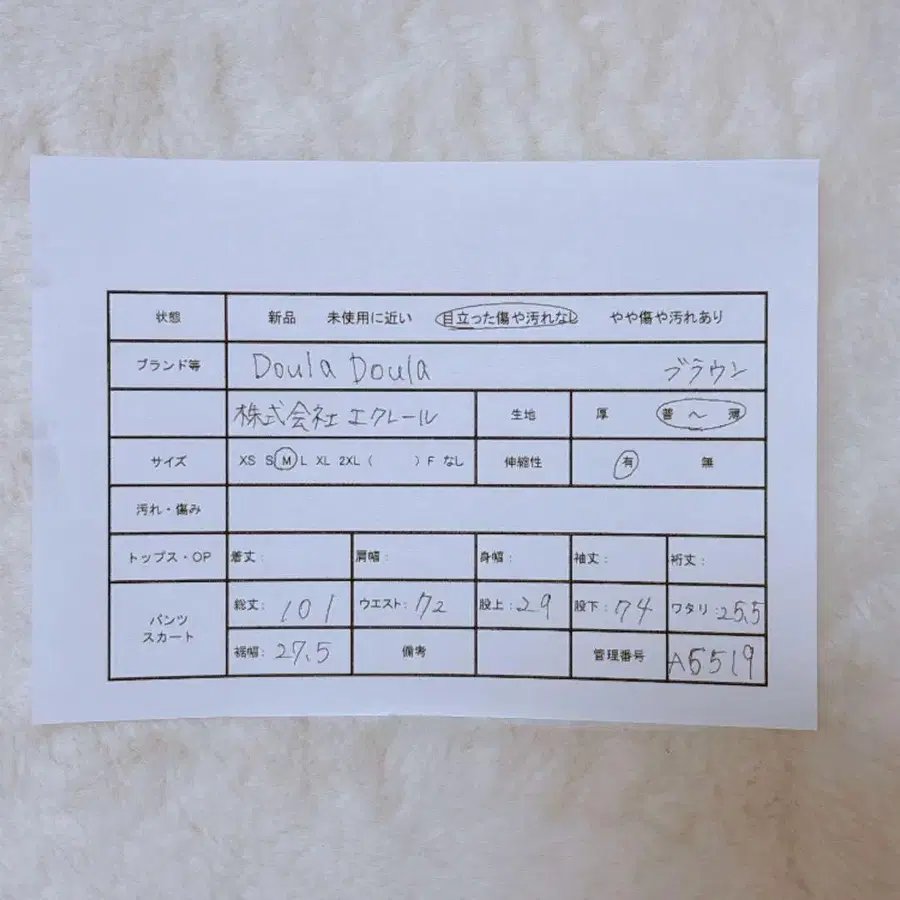 状態 新品 未使用に近い 目立った傷や汚れなし やや傷や汚れあり
ブランド等 Doula Doula ブラウン
株式会社エクレール 生地 厚 普 〜 薄
サイズ XS S M L XL 2XL ( ) F なし 伸縮性 有 無
汚れ・傷み
トップス・OP 着丈: 肩幅: 身幅: 袖丈: 裄丈:
パンツ スカート 総丈: 101 ウエスト: 72 股上: 29 股下: 74 ワタリ: 25.5
裾幅: 27.5 備考 管理番号 A5519